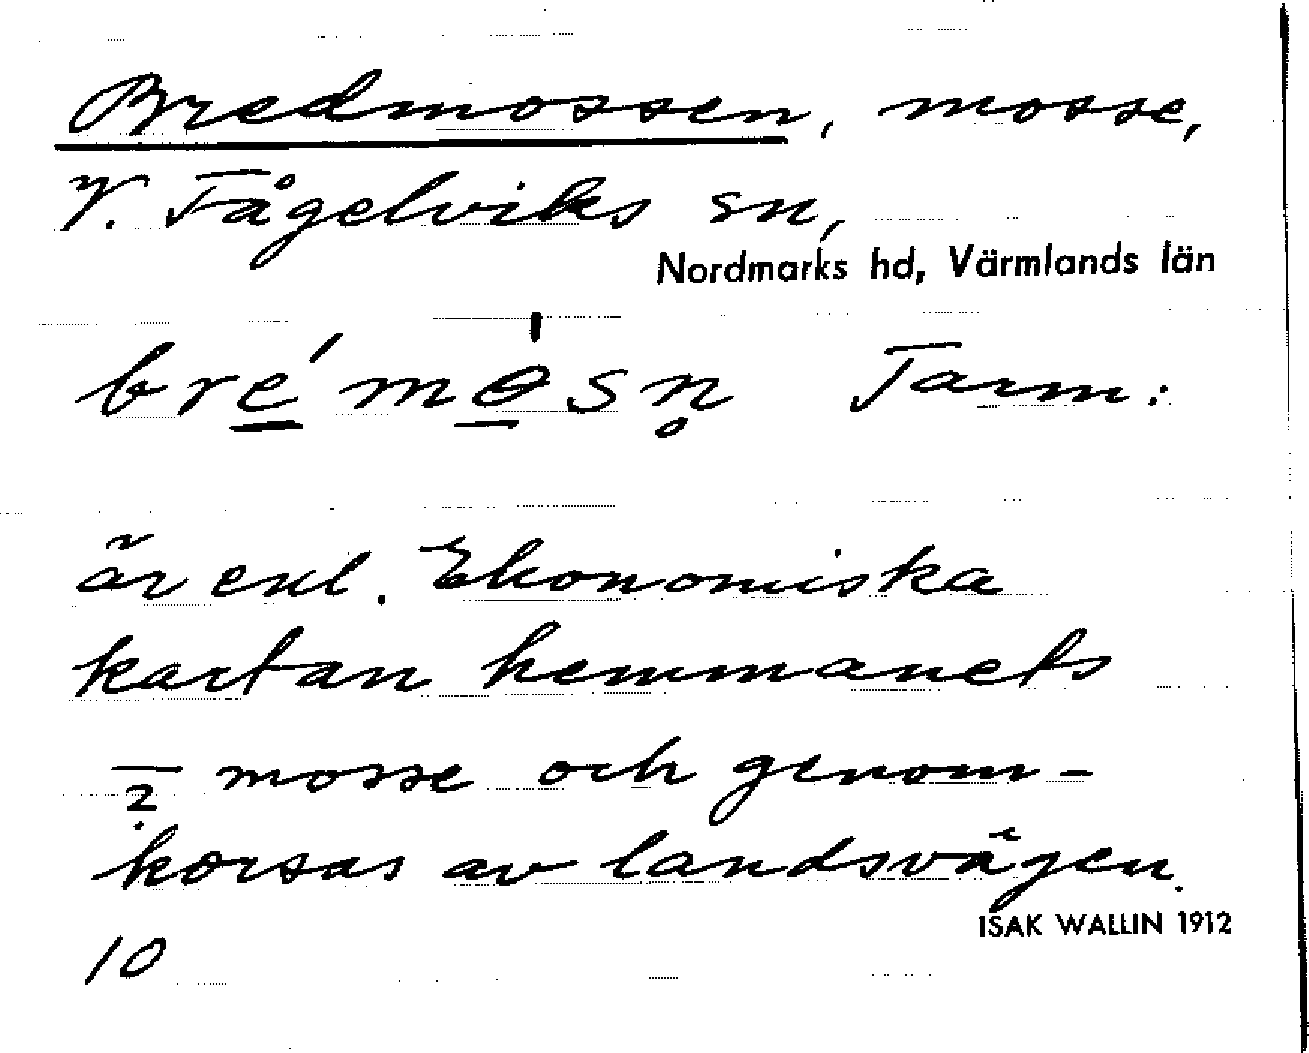 Bredmossen, mosse,
V. Fågelviks sn,
Nordmarks hd, Värmlands län
bre̱´ mɵ̱̍sn̥ Tarm:
är enl. Ekonomiska
kartan hemmanets
— mosse och genom-
2
korsas av landsvägen.
ISAK WALLIN 1912
10